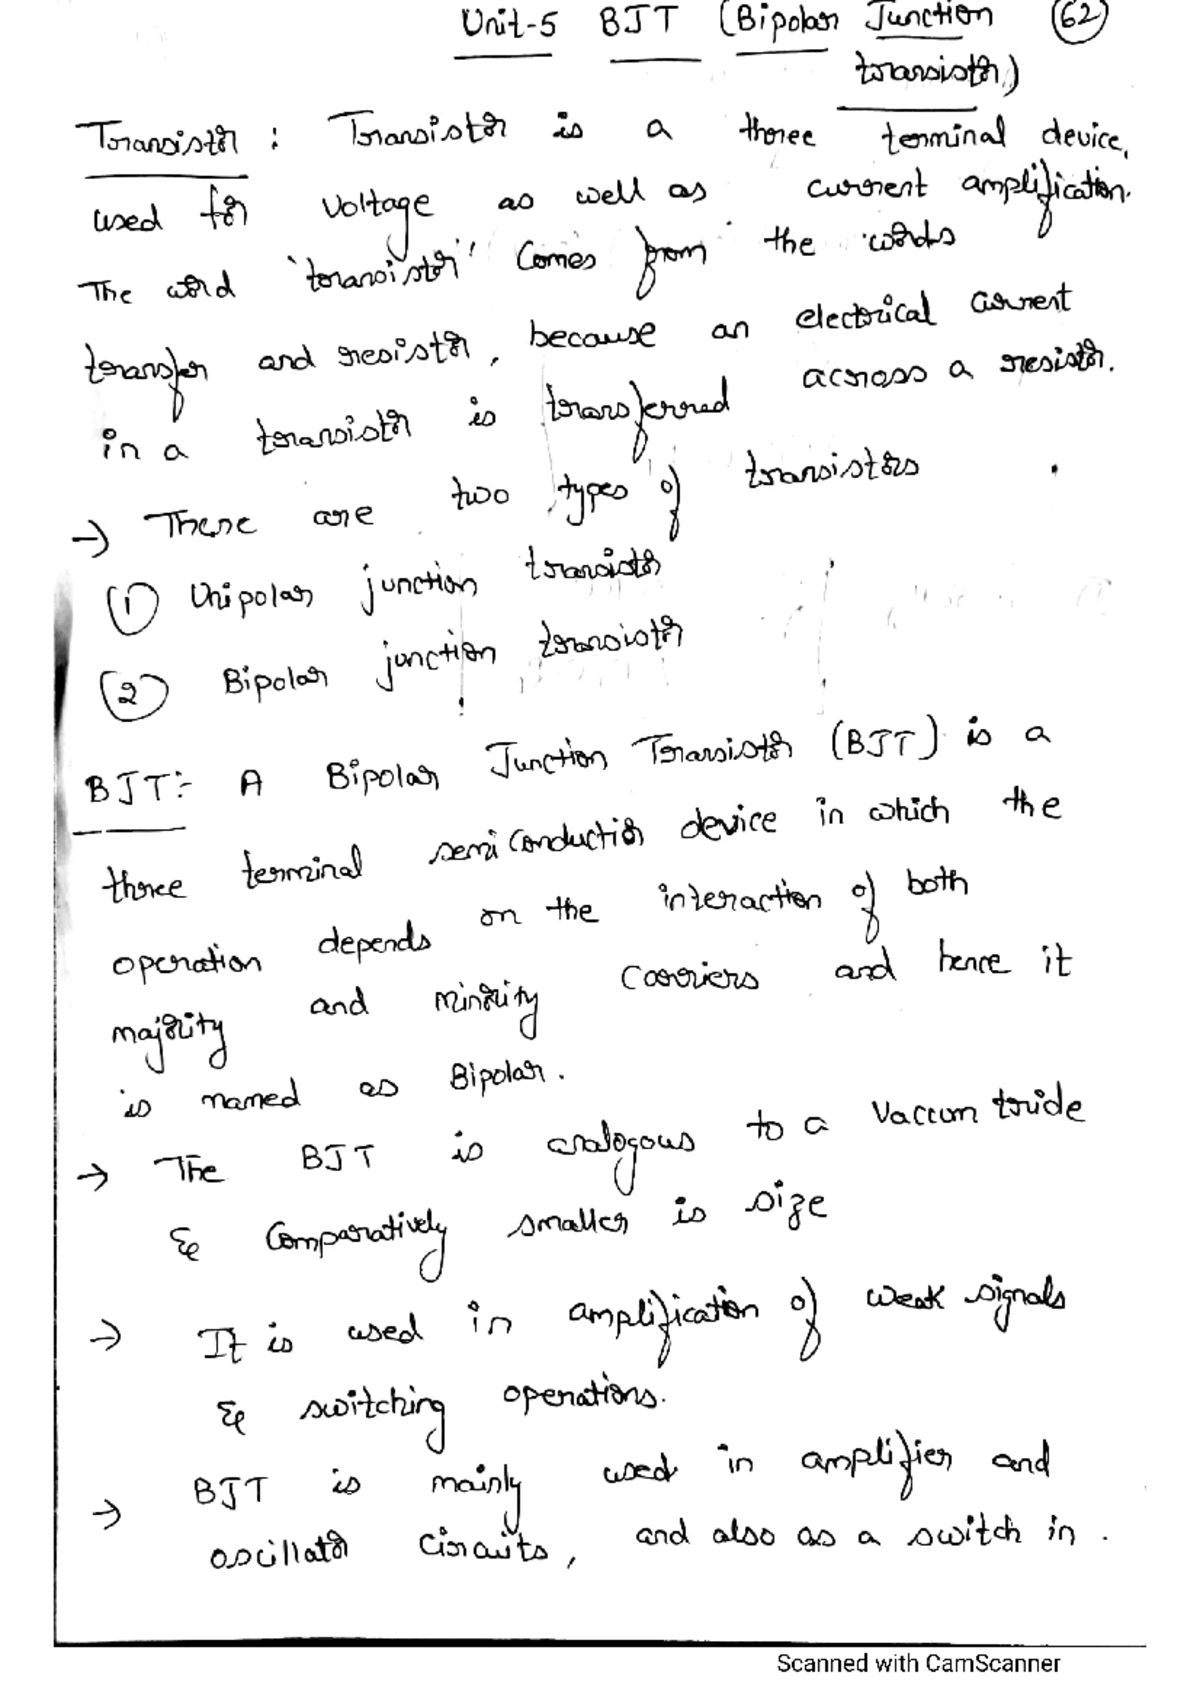 Unit-5 BJT (Bipolar Junction 62
transistor)
Transistor : Transistor is a three terminal device,
used for voltage as well as current amplification.
The word 'transistor' comes from the words
transfer and resistor, because an electrical current
in a transistor is transferred across a resistor.
→ There are two types of transistors
① Unipolar junction transistor
② Bipolar junction transistor
BJT:- A Bipolar Junction Transistor (BJT) is a
three terminal semiconductor device in which the
operation depends on the interaction of both
majority and minority carriers and hence it
is named as Bipolar.
→ The BJT is analogous to a vaccum triode
& comparatively smaller is size
→ It is used in amplification of weak signals
& switching operations.
→ BJT is mainly used in amplifier and
oscillator circuits, and also as a switch in .
Scanned with CamScanner